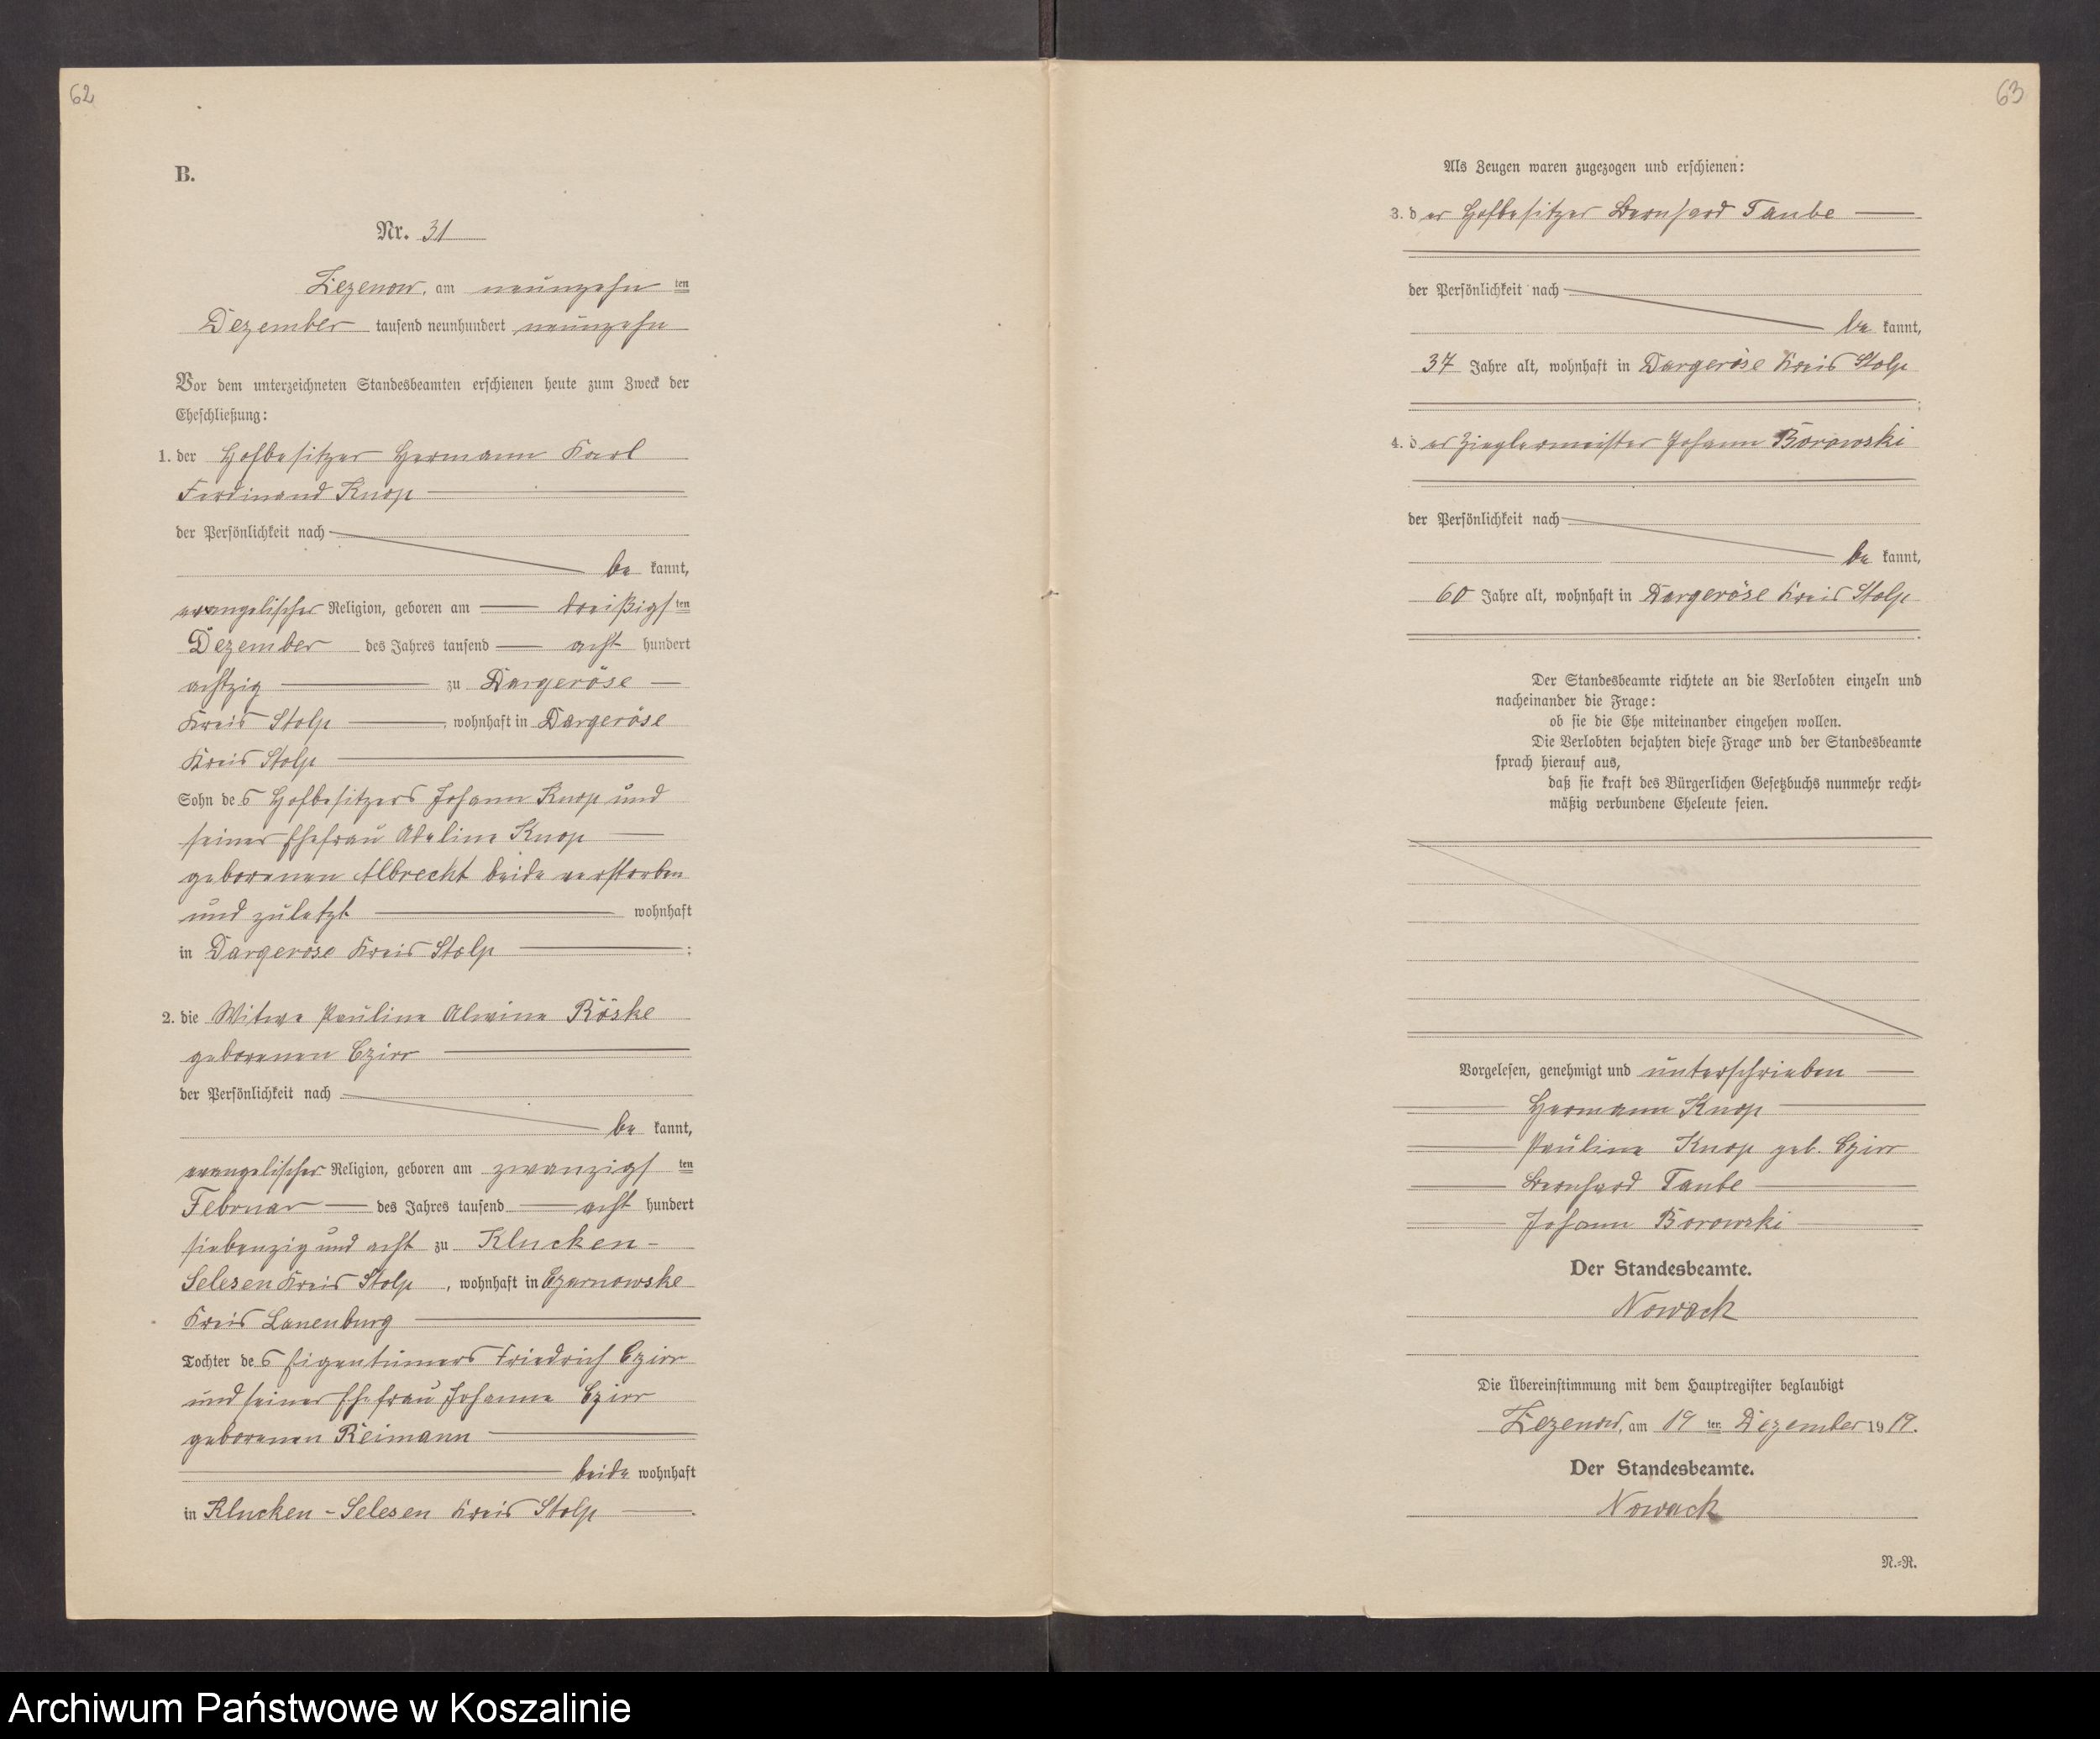 62
B.
Nr. 31
Zezenow, am neunzehn ten
Dezember tausend neunhundert neunzehn
Vor dem unterzeichneten Standesbeamten erschienen heute zum Zweck der
Eheschließung:
1. der Hofbesitzer Hermann Karl
Ferdinand Knop
der Persönlichkeit nach
be kannt,
evangelischer Religion, geboren am dreißigs ten
Dezember des Jahres tausend acht hundert
achtzig zu Dargeröse
Kreis Stolp, wohnhaft in Dargeröse
Kreis Stolp
Sohn des Hofbesitzers Johann Knop und
seiner Ehefrau Adeline Knop
geborenen Albrecht beide verstorben
und zuletzt wohnhaft
in Dargeröse Kreis Stolp ;
2. die Witwe Pauline Alwine Röske
geborenen Czirr
der Persönlichkeit nach
be kannt,
evangelischer Religion, geboren am zwanzigs ten
Februar des Jahres tausend acht hundert
siebenzig und acht zu Klucken-
Selesen Kreis Stolp, wohnhaft in Czarnowske
Kreis Lauenburg
Tochter des Eigentümers Friedrich Czirr
und seiner Ehefrau Johanne Czirr
geborenen Reimann
beide wohnhaft
in Klucken-Selesen Kreis Stolp.
63
Als Zeugen waren zugezogen und erschienen:
3. der Hofbesitzer Bernhard Taube
der Persönlichkeit nach
be kannt,
37 Jahre alt, wohnhaft in Dargeröse Kreis Stolp
;
4. der Zieglermeister Johann Borowski
der Persönlichkeit nach
be kannt,
60 Jahre alt, wohnhaft in Dargeröse Kreis Stolp
.
Der Standesbeamte richtete an die Verlobten einzeln und
nacheinander die Frage:
ob sie die Ehe miteinander eingehen wollen.
Die Verlobten bejahten diese Frage und der Standesbeamte
sprach hierauf aus,
daß sie kraft des Bürgerlichen Gesetzbuchs nunmehr recht-
mäßig verbundene Eheleute seien.
Vorgelesen, genehmigt und unterschrieben
Hermann Knop
Pauline Knop geb. Czirr
Bernhard Taube
Johann Borowski
Der Standesbeamte.
Nowack
Die Übereinstimmung mit dem Hauptregister beglaubigt
Zezenow, am 19 ten Dezember 1919.
Der Standesbeamte.
Nowack
N.-R.
Archiwum Państwowe w Koszalinie